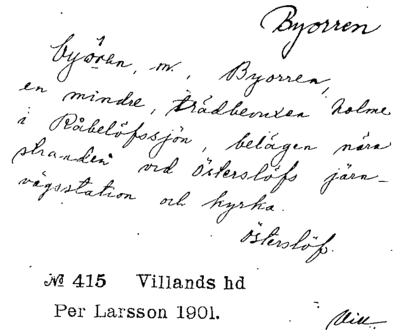 Byorren
byören, m., Byorren,
en mindre, trädbevuxen holme
i Råbelöfssjön, belägen nära
stranden vid Österslöfs järn-
vägsstation och kyrka.
Österslöf.
№ 415 Villands hd
Per Larsson 1901.
Vill.